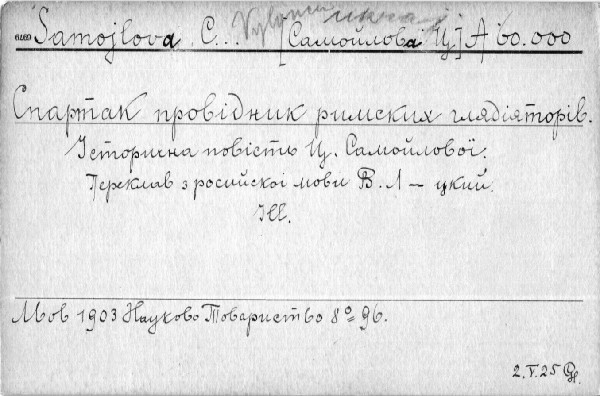 Samojlova C... [Самойлова Ц] А 60.000
Спартак провідник римских глядіяторів.
Історична повість Ц. Самойлової.
Переклав з російскої мови В. Л — цкий.
Ill.
Львів 1903 Науково Товариство 8º 96.
2.V.25